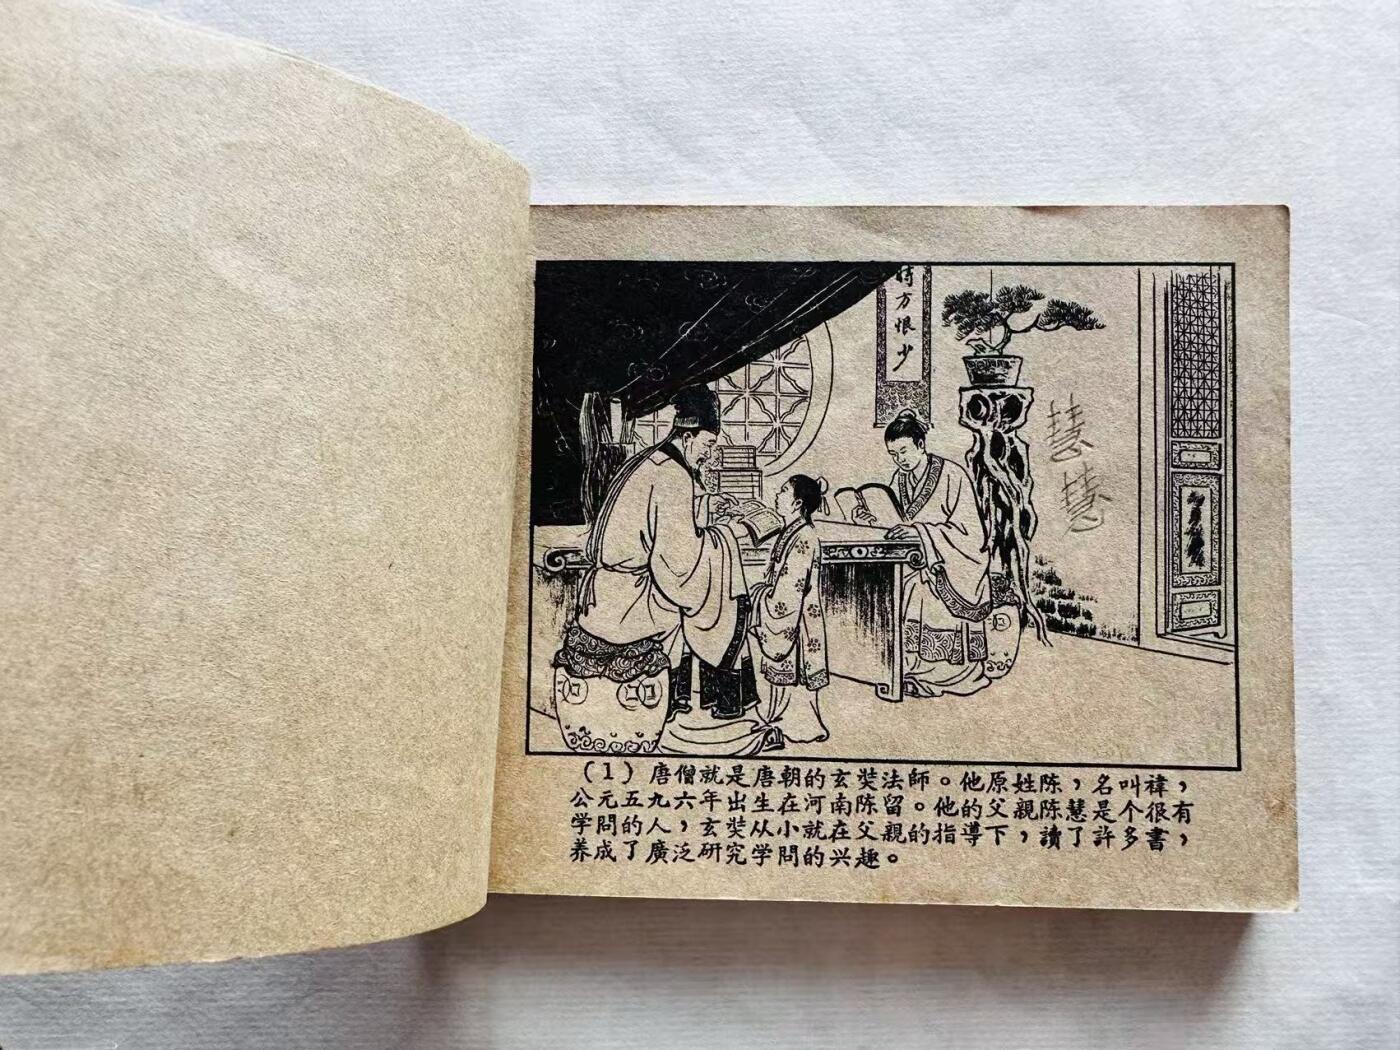 時方恨少
慧
慧
(1)唐僧就是唐朝的玄奘法師。他原姓陈，名叫禕，
公元五九六年出生在河南陈留。他的父親陈慧是个很有
学問的人，玄奘从小就在父親的指導下，讀了許多書，
养成了廣泛研究学問的兴趣。